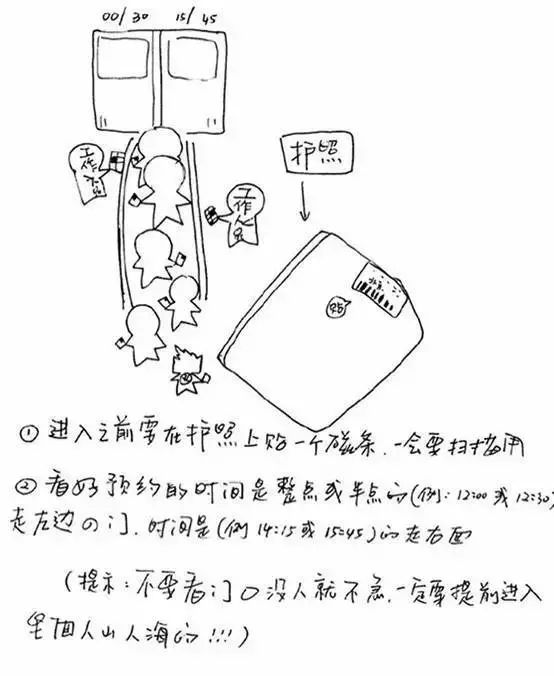 00/30 15/45
工作人员
工作人员
护照
贴
① 进入之前需在护照上贴一个磁条，一会要扫描用
② 看好预约的时间是整点或半点的(例: 12:00 或 12:30)
走左边の门. 时间是 (例 14:15 或 15:45) 的走右面
(提示: 不要看门口没人就不急, 一定要提前进入
里面人山人海的!!!)